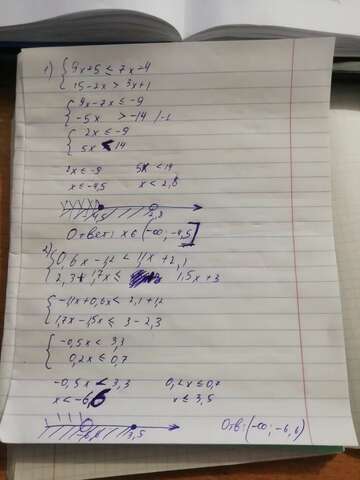 1) { 9x+5 ≤ 7x-4
15-2x > 3x+1
{ 9x-7x ≤ -9
-5x > -14 /-1
{ 2x ≤ -9
5x < 14
2x ≤ -9 5x < 14
x ≤ -4,5 x < 2,8
-4,5 2,8
Ответ: x ∈ (-∞; -4,5]
2) { 0,6x-1,2 < 1,1x+2,1
2,3+1,7x ≤ 1,5x+3
{ -1,1x+0,6x < 2,1+1,2
1,7x-1,5x ≤ 3-2,3
{ -0,5x < 3,3
0,2x ≤ 0,7
-0,5x < 3,3 0,2x ≤ 0,7
x < -6,6 x ≤ 3,5
-6,6 3,5 Отв: (-∞; -6,6)